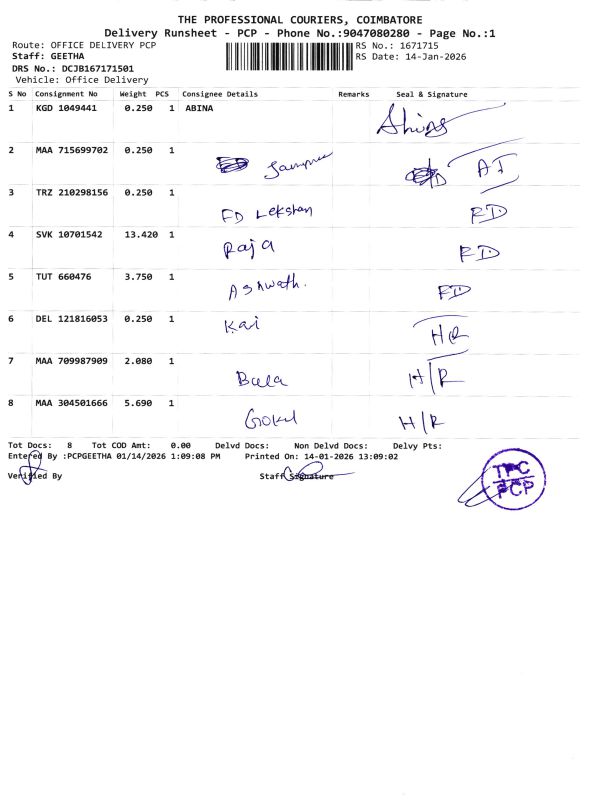 THE PROFESSIONAL COURIERS, COIMBATORE
Delivery Runsheet - PCP - Phone No.:9047080280 - Page No.:1
Route: OFFICE DELIVERY PCP RS No.: 1671715
Staff: GEETHA RS Date: 14-Jan-2026
DRS No.: DCJB167171501
Vehicle: Office Delivery
S No Consignment No Weight PCS Consignee Details Remarks Seal & Signature
1 KGD 1049441 0.250 1 ABINA
2 MAA 715699702 0.250 1
3 TRZ 210298156 0.250 1
FD Lekshan FD
4 SVK 10701542 13.420 1
Raja FD
5 TUT 660476 3.750 1
Ashwath. FD
6 DEL 121816053 0.250 1
Kai H/R
7 MAA 709987909 2.080 1
Bala H/R
8 MAA 304501666 5.690 1
Gokul H/R
Tot Docs: 8 Tot COD Amt: 0.00 Delvd Docs: Non Delvd Docs: Delvy Pts:
Entered By :PCPGEETHA 01/14/2026 1:09:08 PM Printed On: 14-01-2026 13:09:02
Verified By Staff Signature
TPC
PCP